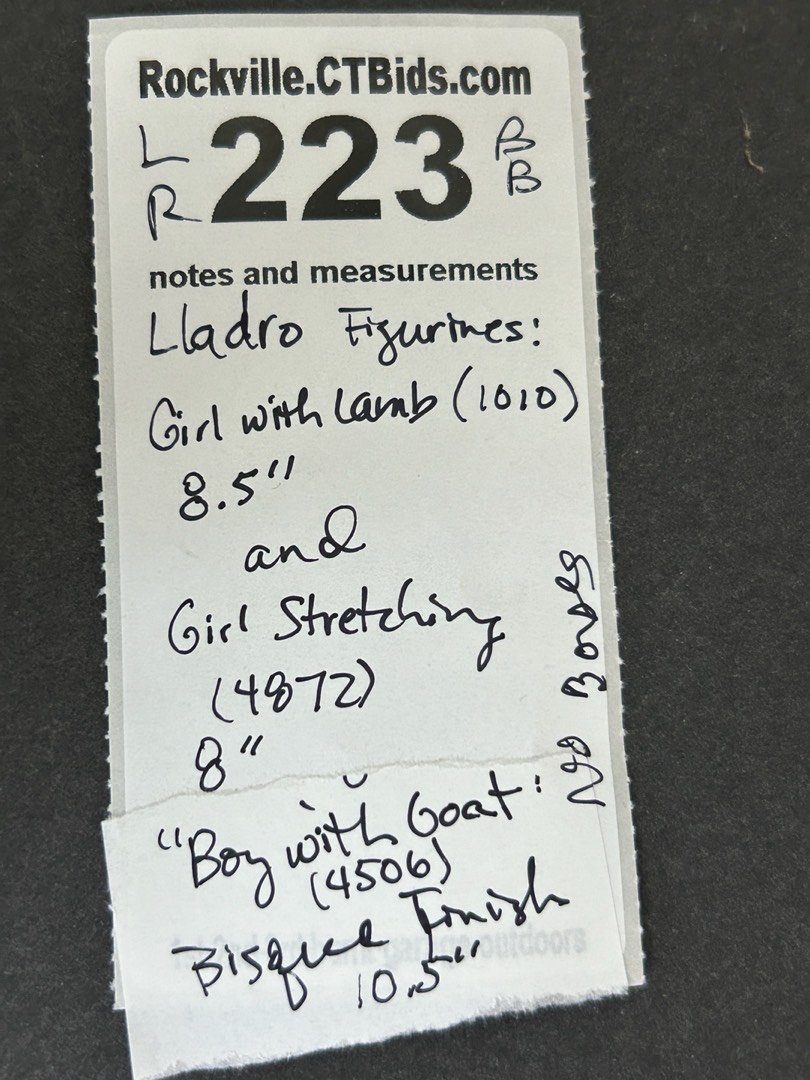 Rockville.CTBids.com
L 223 B
R B
notes and measurements
Lladro Figurines:
Girl with Lamb (1010)
8.5"
and
Girl Stretching
(4872)
8"
No Boxes
"Boy with Goat"
(4506)
Bisque Finish
10.5"
garage outdoors